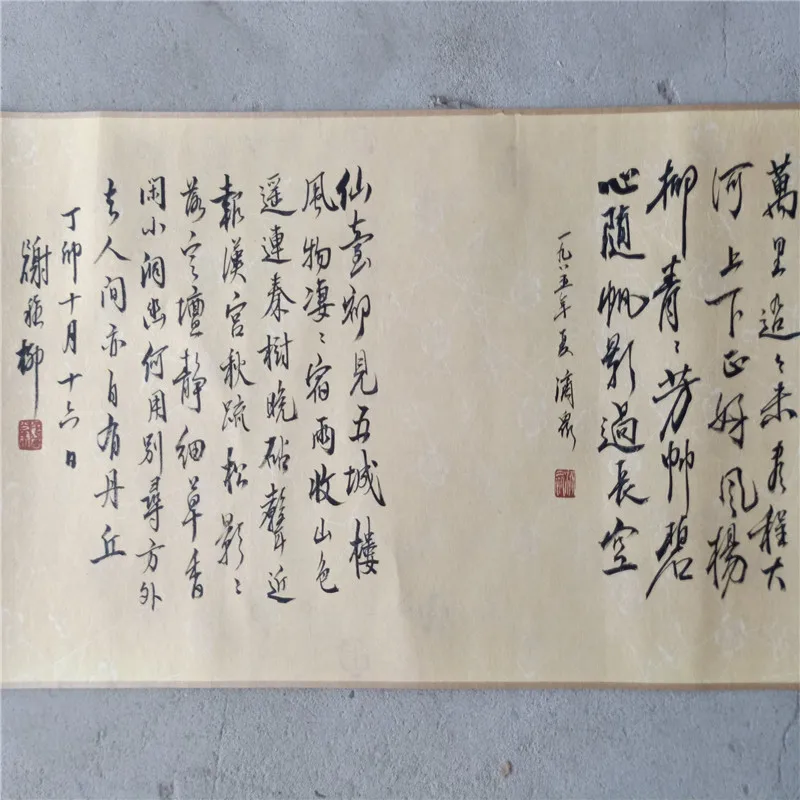 萬里迢〻未程大
河上下正好風楊
柳青〻芳艸碧
心随帆影過長空
一九八五年夏
仙臺初見五城樓
風物凄〻宿雨收山色
遥連秦樹晚砧聲近
報漢宫秋疏松影〻
落空壇靜細草香
閑小洞幽何用别尋方外
去人間亦自有丹丘
丁卯十月十六日
謝稚柳